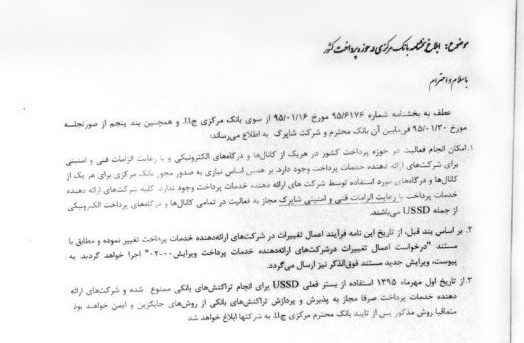 موضوع: ابلاغ بخشنامه بانک مرکزی در حوزه پرداخت کشور
باسلام و احترام
عطف به بخشنامه شماره ۹۵/۶۱۷۶ مورخ ۹۵/۰۱/۱۶ از سوی بانک مرکزی ج.ا.ا. و همچنین بند پنجم از صورتجلسه
مورخ ۹۵/۰۱/۲۰ فی‌مابین آن بانک محترم و شرکت شاپرک به اطلاع می‌رساند:
۱. امکان انجام فعالیت در حوزه پرداخت کشور در هریک از کانال‌ها و درگاه‌های الکترونیکی و با رعایت الزامات فنی و امنیتی
برای شرکت‌های ارائه دهنده خدمات پرداخت وجود دارد. بر همین اساس نیازی به صدور مجوز بانک مرکزی برای هر یک از
کانال‌ها و درگاه‌های مورد استفاده توسط شرکت های ارائه دهنده خدمات پرداخت وجود ندارد. کلیه شرکت‌های ارائه دهنده
خدمات پرداخت با رعایت الزامات فنی و امنیتی شاپرک مجاز به فعالیت در تمامی کانال‌ها و درگاه‌های پرداخت الکترونیکی
از جمله USSD می‌باشند.
۲. بر اساس بند قبل، از تاریخ این نامه فرآیند اعمال تغییرات در شرکت‌های ارائه‌دهنده خدمات پرداخت تغییر نموده و مطابق با
مستند "درخواست اعمال تغییرات درشرکت‌های ارائه‌دهنده خدمات پرداخت ویرایش ۰۰-۰۲" اجرا خواهد گردید. به
پیوست، ویرایش جدید مستند فوق‌الذکر نیز ارسال می‌گردد.
۳. از تاریخ اول مهرماه ۱۳۹۵ استفاده از بستر فعلی USSD برای انجام تراکنش‌های بانکی ممنوع شده و شرکت‌های ارائه
دهنده خدمات پرداخت صرفا مجاز به پذیرش و پردازش تراکنش‌های بانکی از روش‌های جایگزین و ایمن خواهند بود
متعاقبا روش مذکور پس از تایید بانک محترم مرکزی ج.ا.ا. به شرکتها ابلاغ خواهد شد